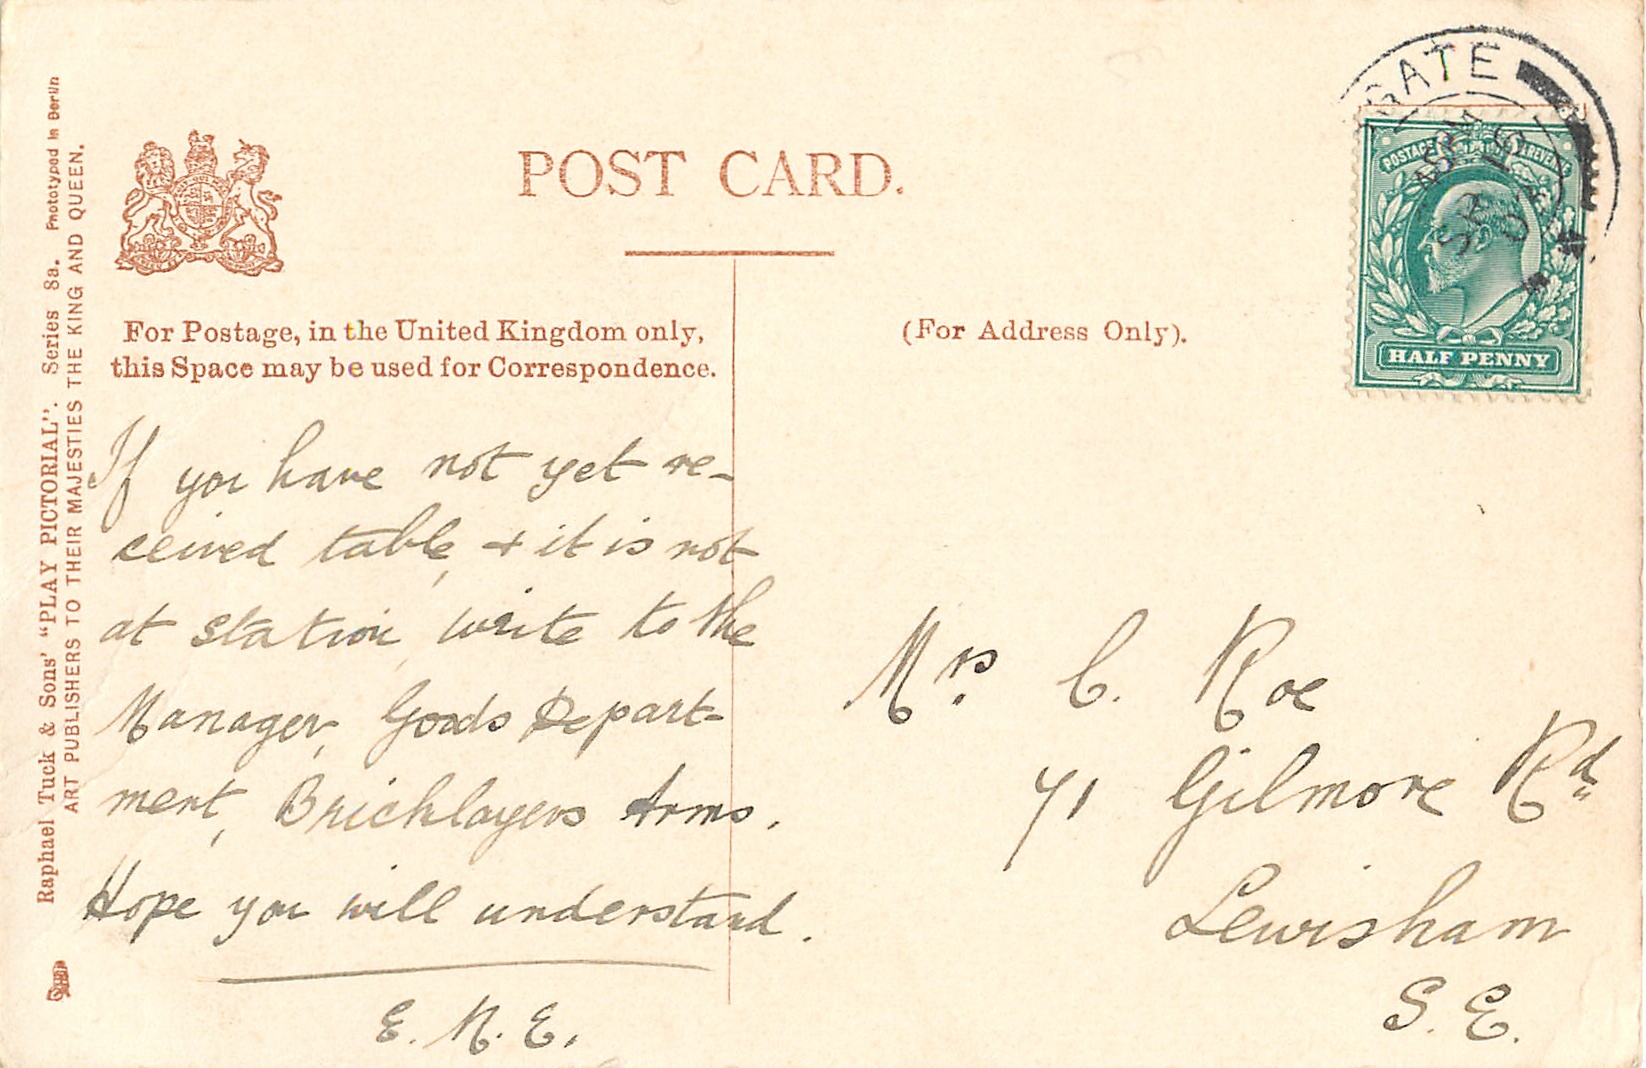 POST CARD.
For Postage, in the United Kingdom only,
this Space may be used for Correspondence.
(For Address Only).
If you have not yet re-
ceived table, & it is not
at station, write to the
Manager, Goods Depart-
ment, Bricklayers Arms.
Hope you will understand.
E. R. E.
Mrs C. Roe
71 Gilmore Rd
Lewisham
S. E.
Raphael Tuck & Sons' "PLAY PICTORIAL". Series 8a. Phototyped in Berlin
ART PUBLISHERS TO THEIR MAJESTIES THE KING AND QUEEN.
GATE
POSTAGE
HALF PENNY